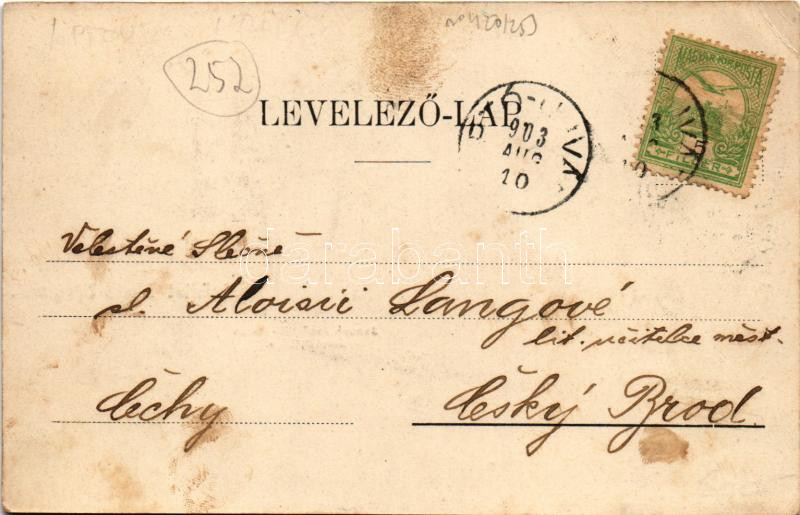 252
LEVELEZŐ-LAP
903
AUG
10
MAGYAR KIR. POSTA
5
FILLÉR
darabanth
Velectěné Slečně
sl. Aloisii Langové
lit. učitelce měst.
Čechy
Český Brod.